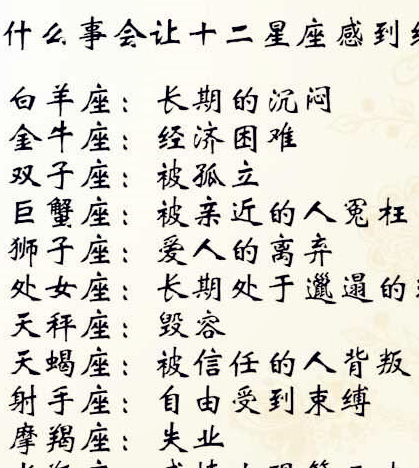 什么事会让十二星座感到
白羊座：长期的沉闷
金牛座：经济困难
双子座：被孤立
巨蟹座：被亲近的人冤枉
狮子座：爱人的离弃
处女座：长期处于邋遢的
天秤座：毁容
天蝎座：被信任的人背叛
射手座：自由受到束缚
摩羯座：失业